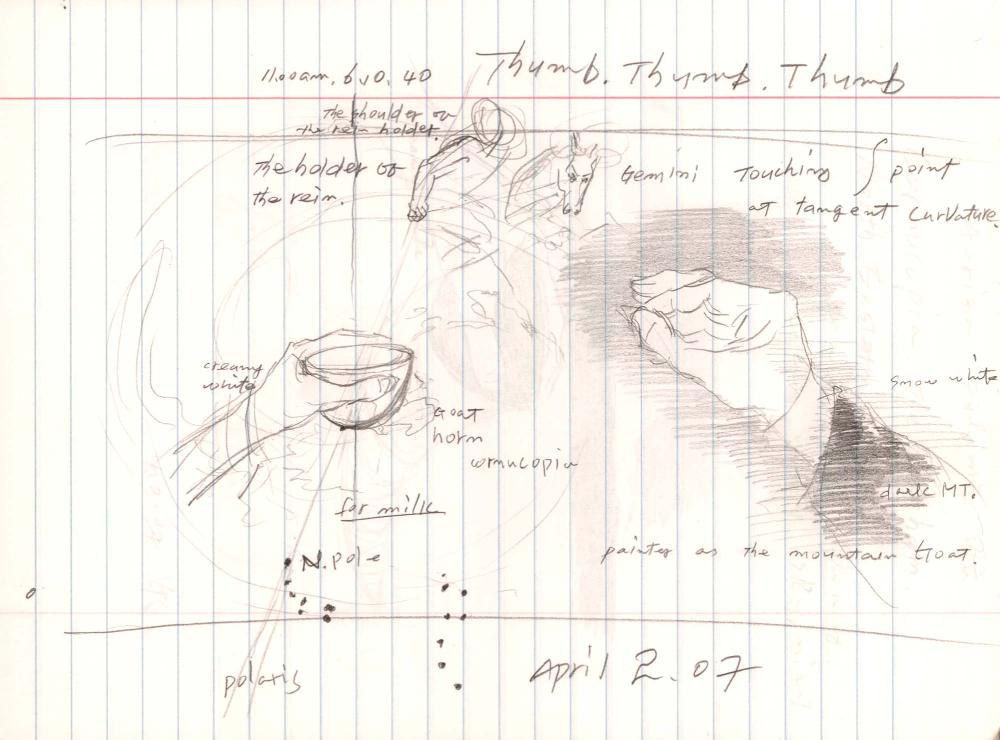 Thumb. Thumb. Thumb
11.00am. 6v0. 40
The shoulder or
the rein holder.
The holder or
the rein.
Gemini Touching ∫ point
at tangent Curvature.
creamy
white
Snow white
Goat
horn
cornucopia
for milk
dark MT.
painter as the mountain Goat.
N.pole
polaris
April 2.07